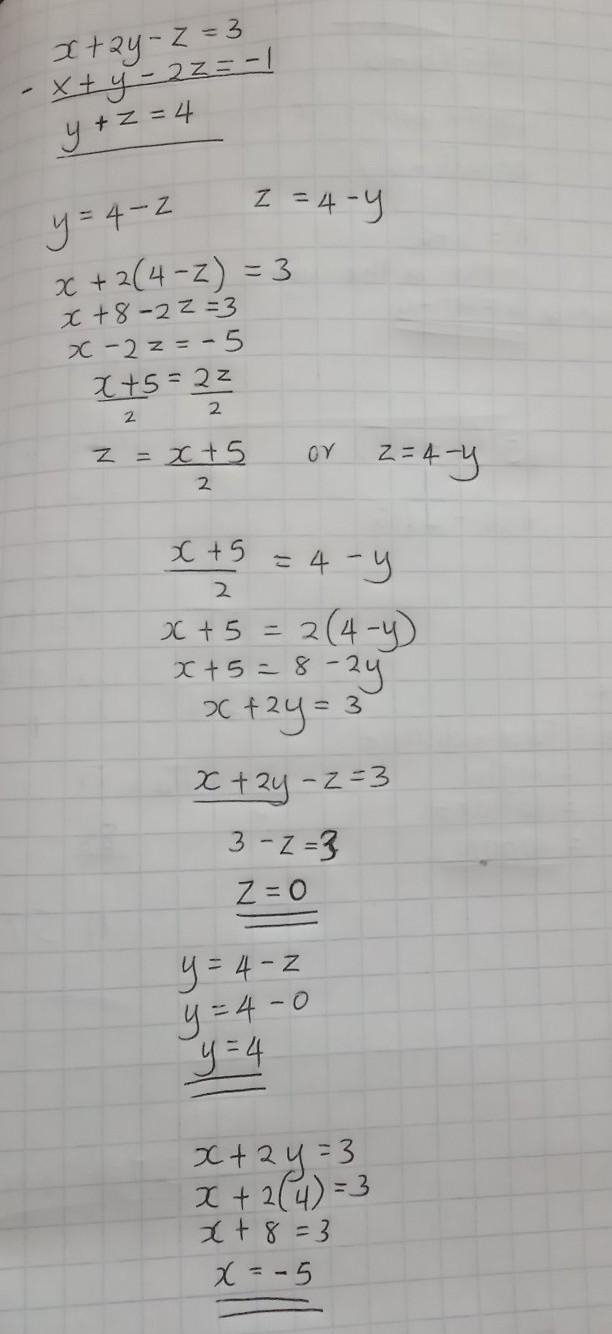 x+2y-z=3
- x+y-2z=-1
y+z=4
y=4-z z=4-y
x+2(4-z)=3
x+8-2z=3
x-2z=-5
x+5=2z
2 2
z=x+5 or z=4-y
2
x+5=4-y
2
x+5=2(4-y)
x+5=8-2y
x+2y=3
x+2y-z=3
3-z=3
z=0
y=4-z
y=4-0
y=4
x+2y=3
x+2(4)=3
x+8=3
x=-5